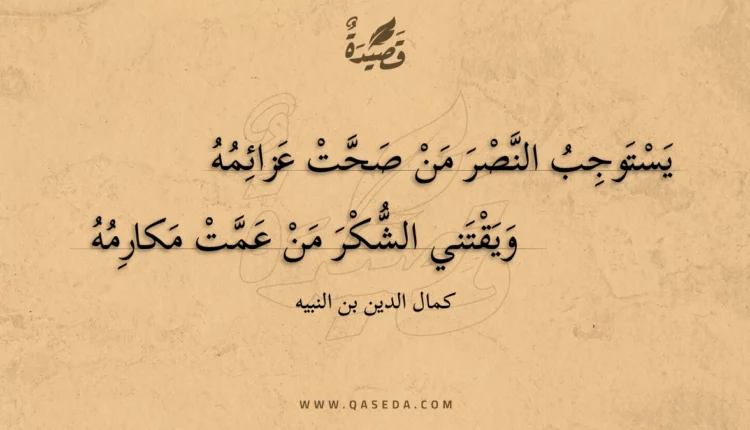 قَصِيْدَةٌ
يَسْتَوجِبُ النَّصْرَ مَنْ صَحَّتْ عَزائِمُهُ
وَيَقْتَني الشُّكْرَ مَنْ عَمَّتْ مَكارِمُهُ
كمال الدين بن النبيه
WWW.QASEDA.COM